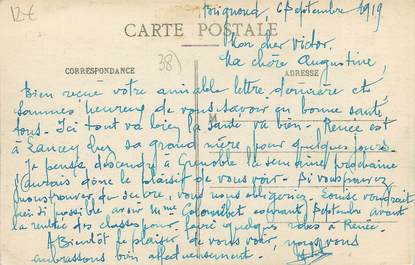 12€
Poignond 6 Septembre 1919
CARTE POSTALE
38)
Mon cher Victor,
Ma chère Augustine,
CORRESPONDANCE
ADRESSE
Bien reçue votre aimable lettre dernière et
sommes heureux de vous savoir en bonne santé
tous. Ici tout va bien la santé va bien. Renée est
à Lancey chez sa grand'mère pour quelques jours.
Je pense descendre à Grenoble la semaine prochaine
j'aurais donc le plaisir de vous voir. Si vous pouvez
nous trouver du sucre, vous nous obligeriez. Louise voudrait
si possible avoir Mme Colombet courant Septembre avant
la rentrée des classes pour faire quelques robes à Renée.
A Bientôt le plaisir de vous voir, nous vous
embrassons bien affectueusement.